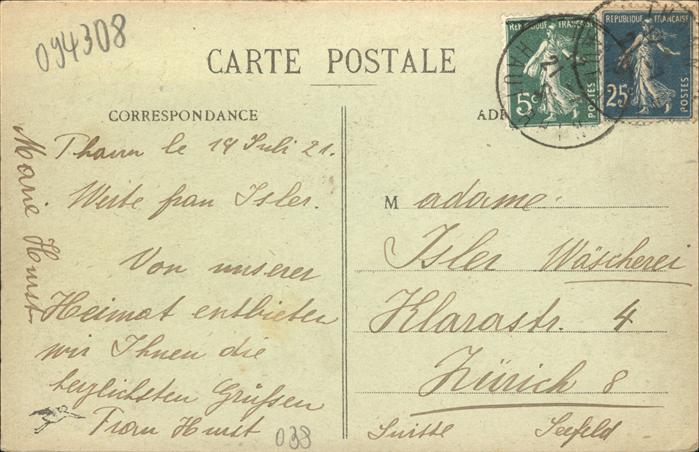 094308
CARTE POSTALE
REPUBLIQUE FRANÇAISE
5c
POSTES
REPUBLIQUE FRANÇAISE
25c
POSTES
CORRESPONDANCE
Thann le 14 Juli 21.
Werte frau Isler.
Von unserer
Heimat entbieten
wir Ihnen die
herzlichsten Grüssen
Frau Hurst
Marie Hurst
038
Madame
Isler Wäscherei
Klarastr. 4
Zürich 8
Suisse Seefeld